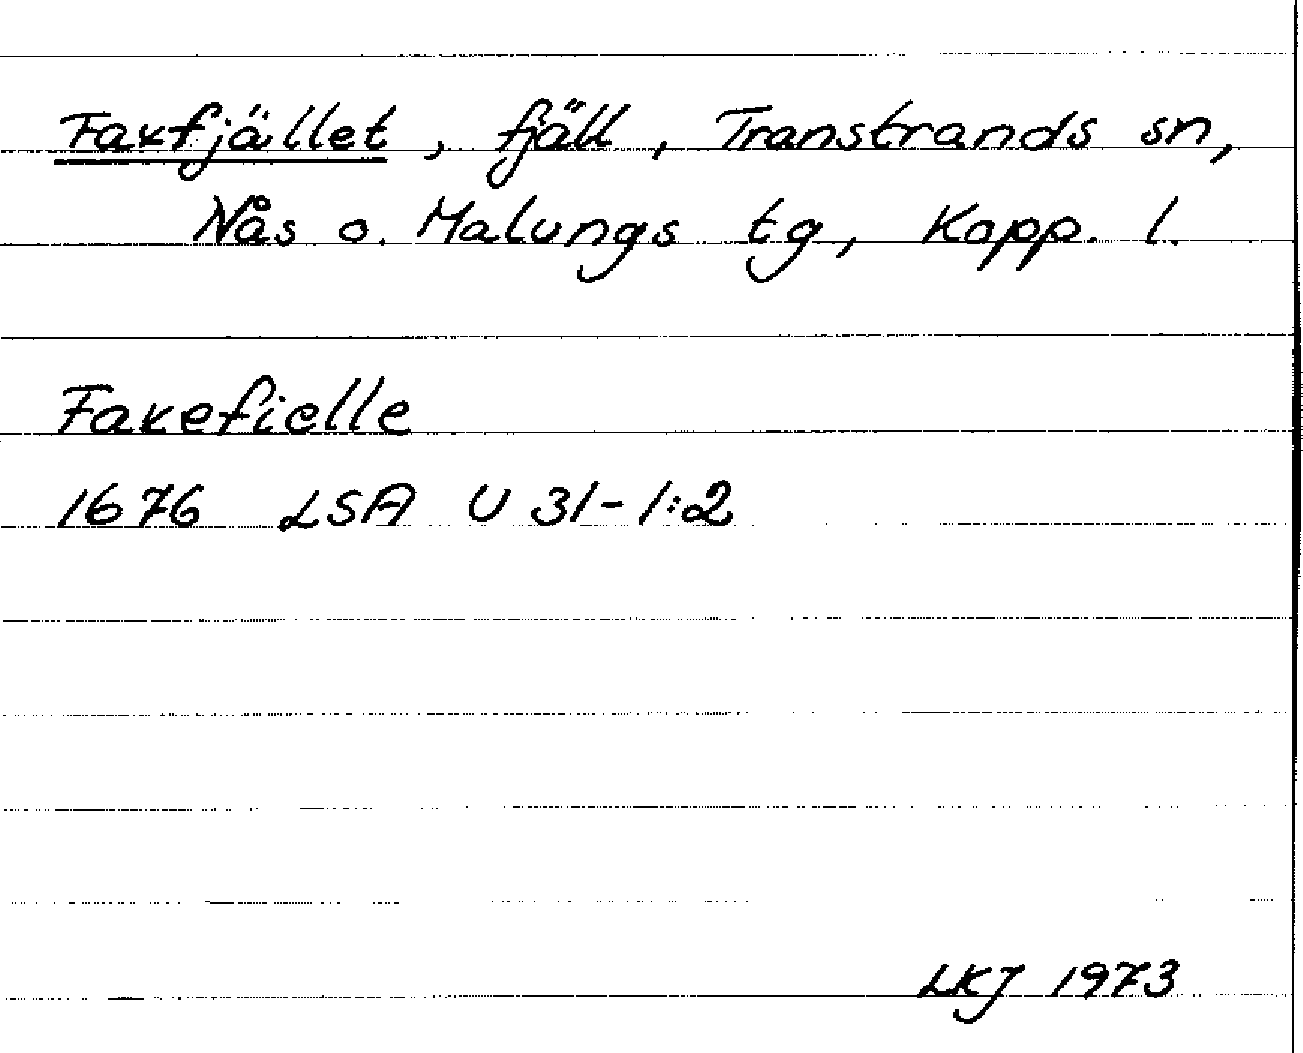 Faxfjället, fjäll, Transtrands sn,
Nås o. Malungs tg, Kopp. l.
Faxefielle
1676 LSA U 31-1:2
LKJ 1973